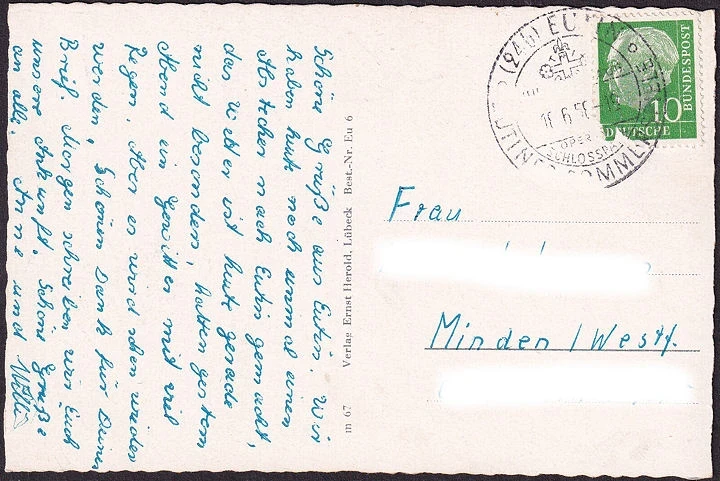 Schöne Grüße aus Eutin. Wir
haben heute noch einmal einen
Abstecher nach Eutin gemacht,
das Wetter ist heute gerade
nicht besonders, hatten gestern
Abend ein Gewitter mit viel
Regen. Aber es wird schon wieder
werden. Schönen Dank für Deinen
Brief. Morgen schreiben wir Euch
unsere Ankunft. Schöne Grüße
an alle. Anne und Willi
m 67 Verlag Ernst Herold, Lübeck Best.-Nr. Eu 6
(24b) EUTIN
16.6.56
OPER
SCHLOSSPA
EUTINER SOMMER
DEUTSCHE
BUNDESPOST
10
Frau
Minden / Westf.